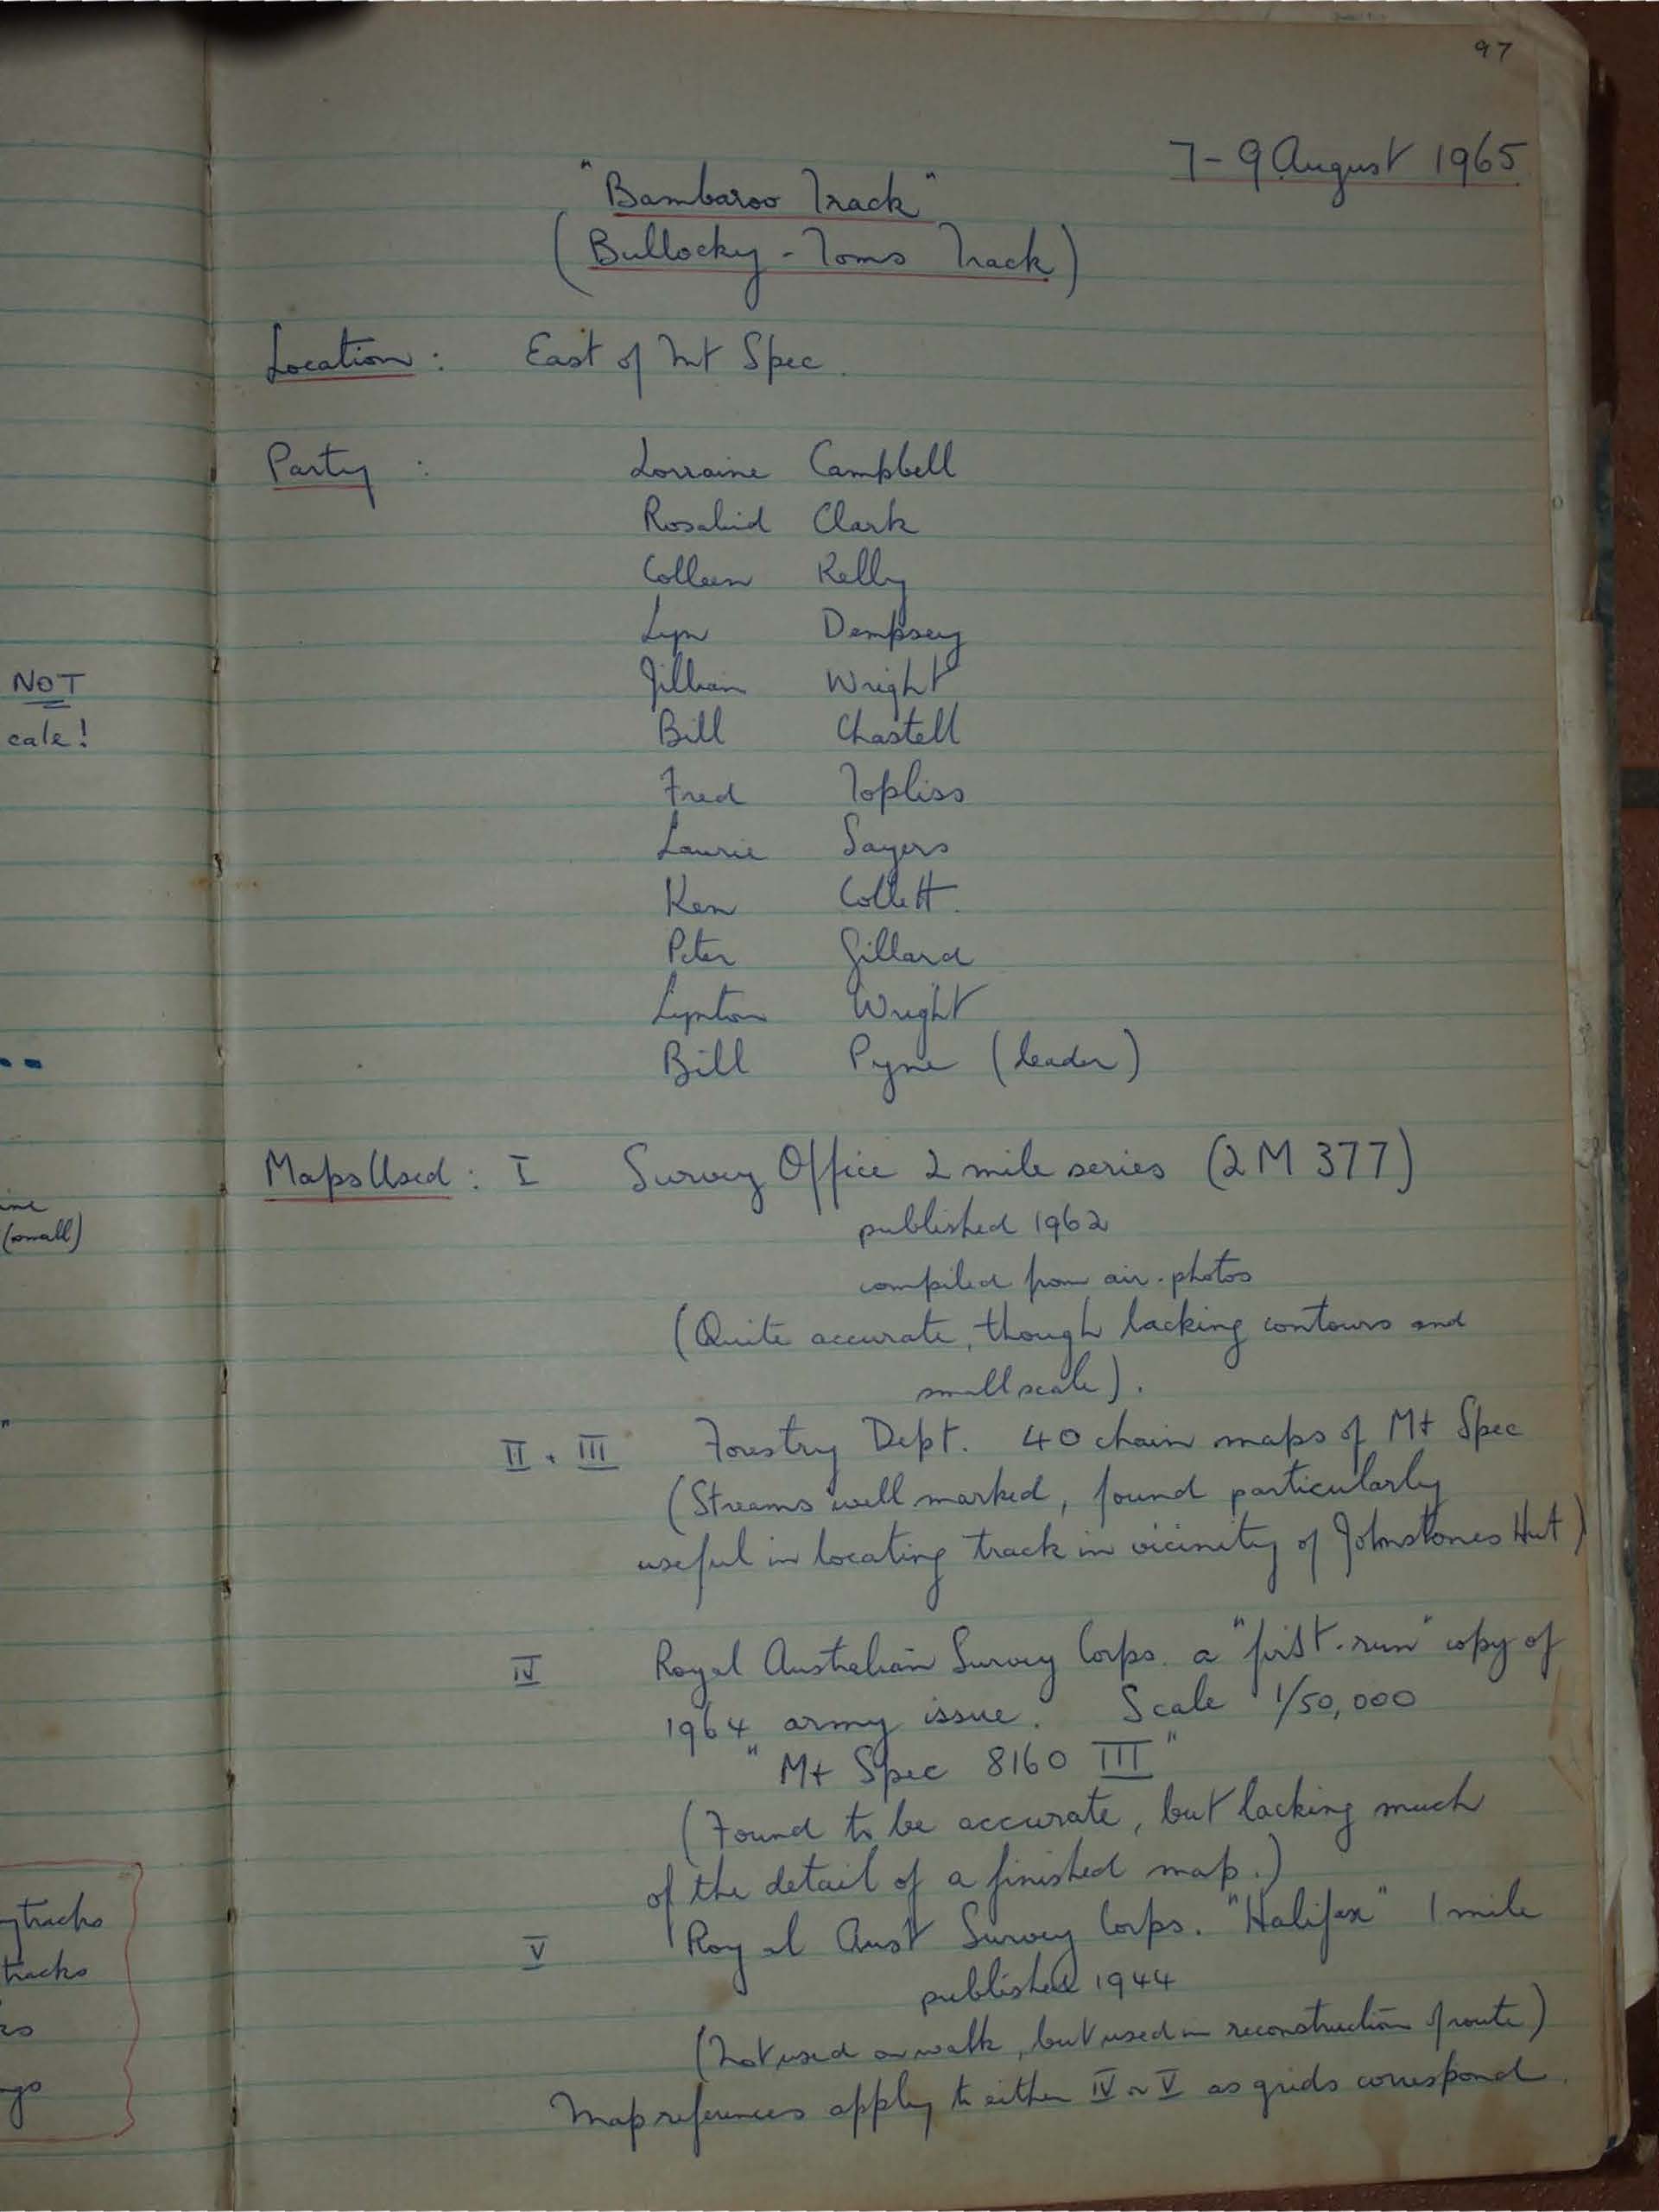 97
7-9 August 1965
"Bambaroo Track"
(Bullocky-Toms Track)
Location: East of Mt Spec.
Party: Lorraine Campbell
Rosalind Clark
Colleen Kelly
Lyn Dempsey
Jillian Wright
Bill Chastell
Fred Topliss
Laurie Sayers
Ken Collett.
Peter Gillard
Lynton Wright
Bill Pyne (leader)
Maps Used: I Survey Office 2 mile series (2M 377)
published 1962
compiled from air-photos
(Quite accurate, though lacking contours and
small scale).
II. III Forestry Dept. 40 chain maps of Mt Spec
(Streams well marked, found particularly
useful in locating track in vicinity of Johnstones Hut)
IV Royal Australian Survey Corps. a "first-run" copy of
1964 army issue. Scale 1/50,000
"Mt Spec 8160 III"
(Found to be accurate, but lacking much
of the detail of a finished map.)
V Royal Aust Survey Corps. "Halifax" 1 mile
published 1944
(Not used on walk, but used in reconstruction of route)
Map references apply to either IV or V as grids correspond.
NOT
cale!
ine
(small)
"
tracks
tracks